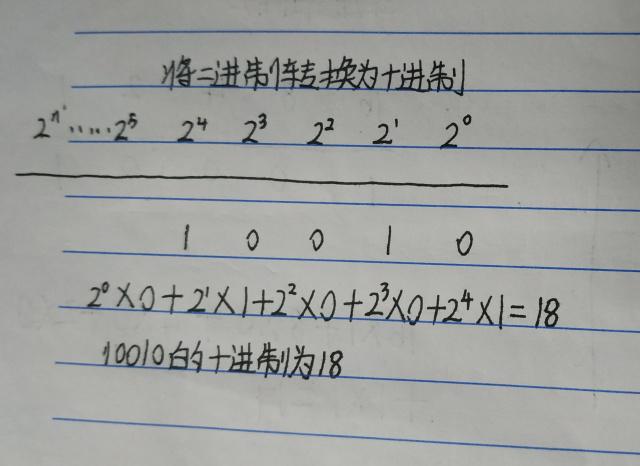 将二进制转换为十进制
2ⁿ ...... 2⁵ 2⁴ 2³ 2² 2¹ 2⁰
1 0 0 1 0
2⁰×0+2¹×1+2²×0+2³×0+2⁴×1=18
10010的十进制为18